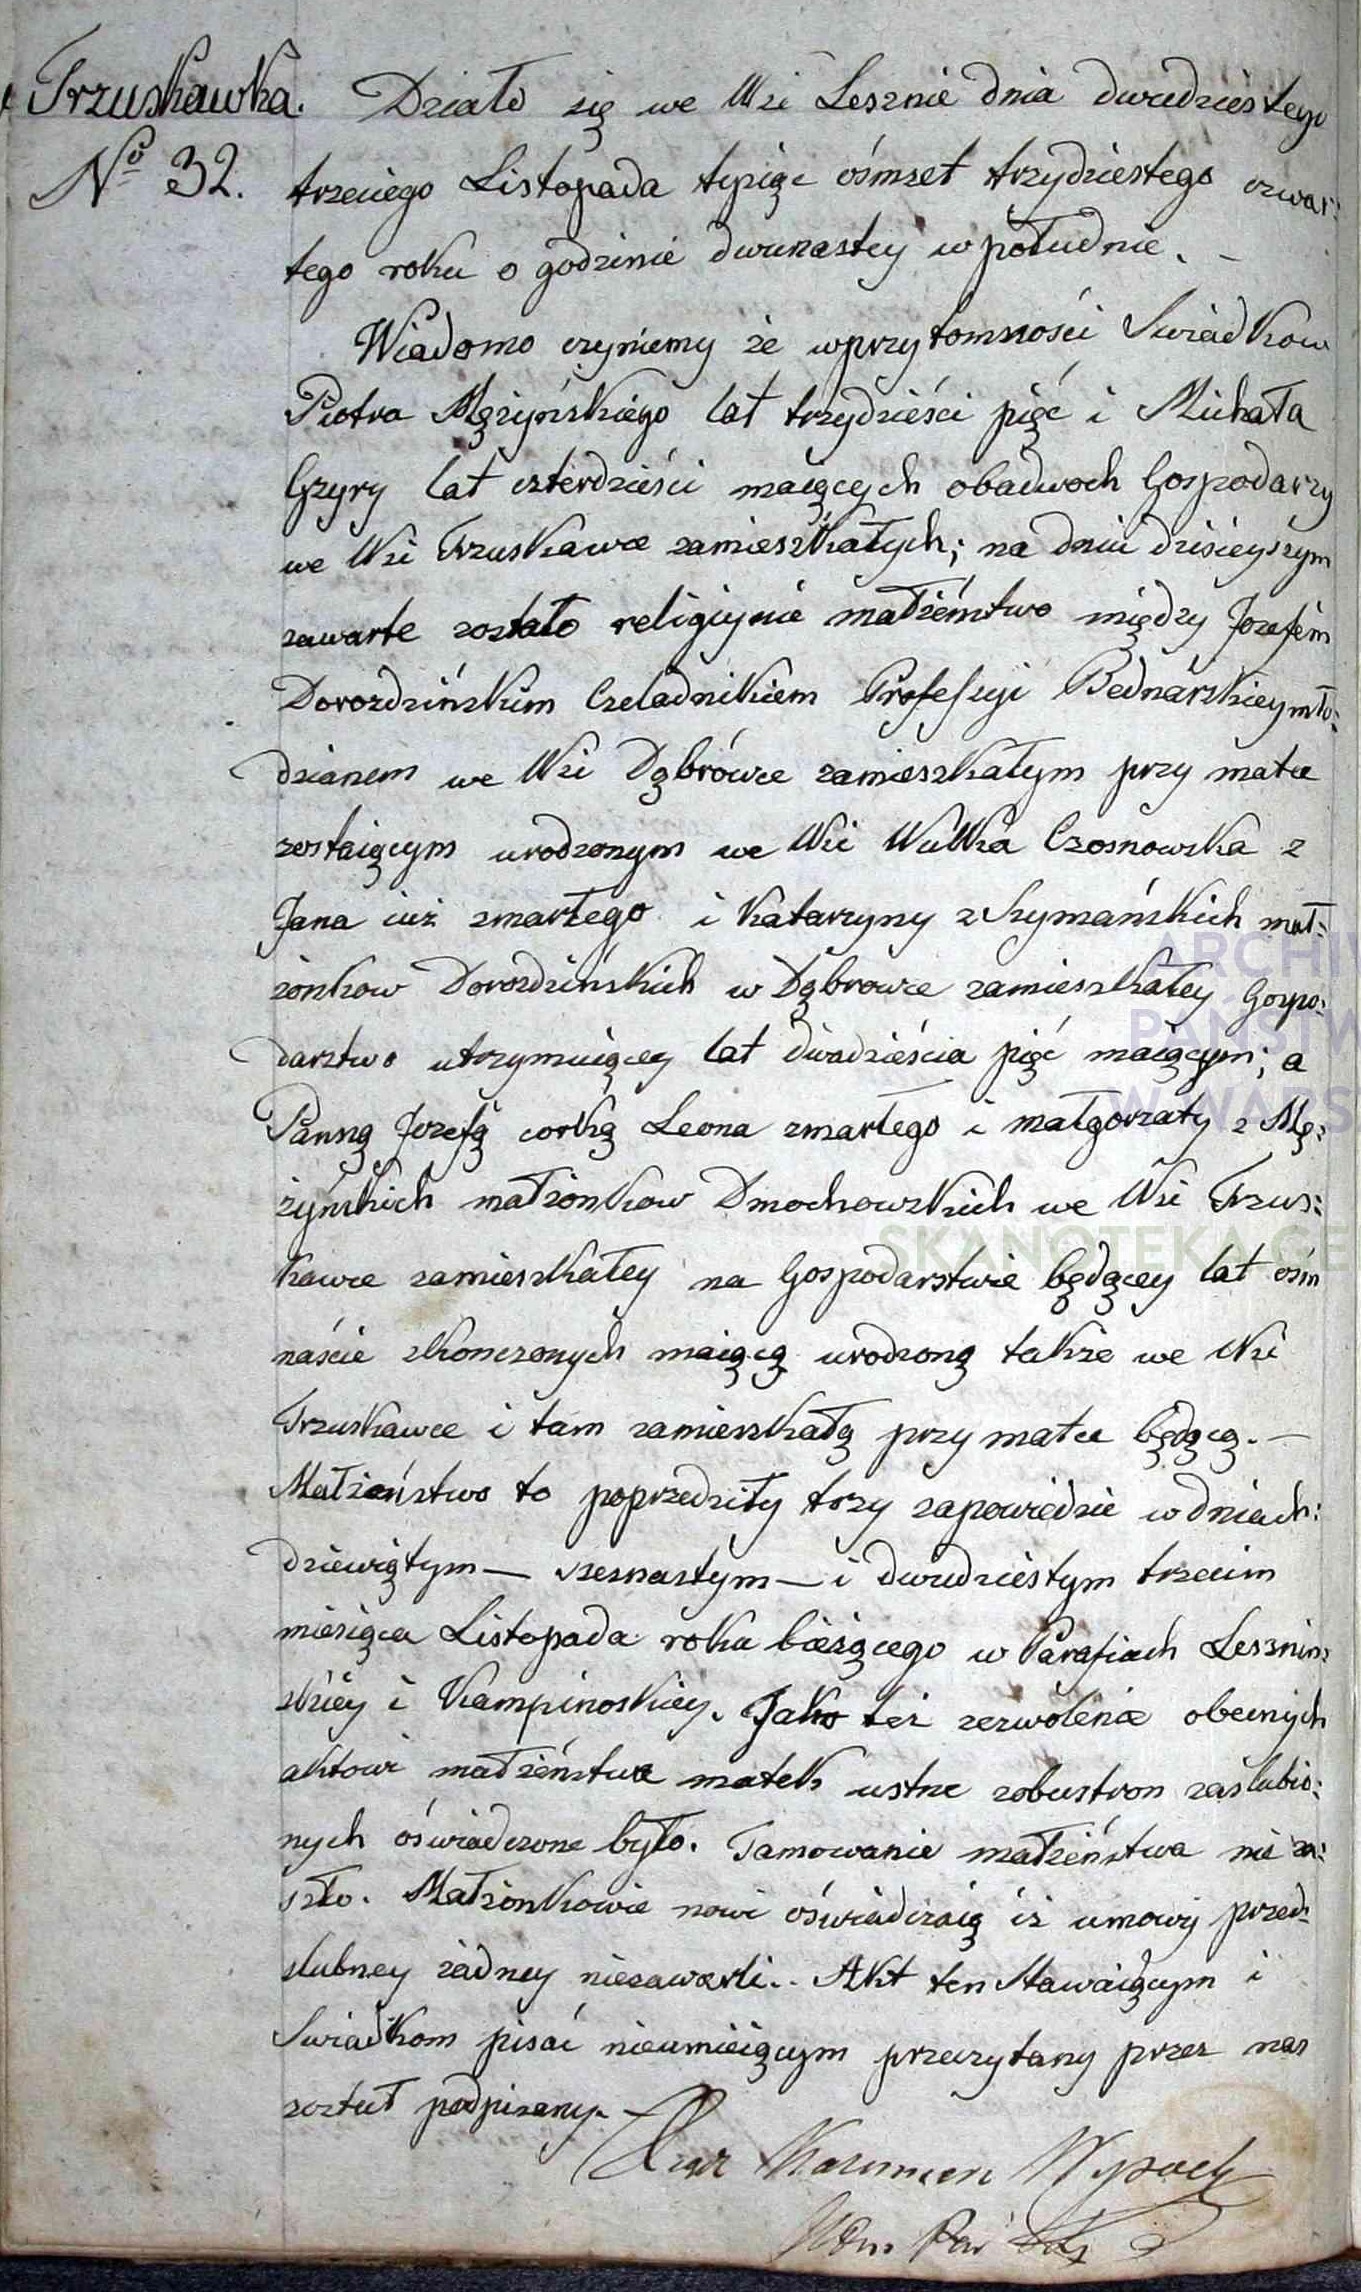 Trzuskawka.
No 32.
Działo się we Wsi Lesznie dnia dwudziestego
trzeciego Listopada tysiąc ośmset trzydziestego czwar:
tego roku o godzinie dwunastey w południe. –
Wiadomo czyniemy że wprzytomności Swiadkow
Piotra Mężyńskiego lat trzydzieści pięć i Michała
Gzyry lat czterdzieści maiących obadwoch Gospodarzy
we Wsi Trzuskawce zamieszkałych; na dniu dzisieyszym
zawarte zostało religiynie małżeństwo między Jozefem
Dorozdzińskim Czeladnikiem Professyi Bednarskiey mło:
dzianem we Wsi Dąbrówce zamieszkałym przy matce
zostaiącym urodzonym we Wsi Wulka Czosnowska z
Jana iuż zmarłego i Katarzyny z Szymańskich mał:
żonkow Dorozdzińskich w Dąbrowce zamieszkałey Gospo:
darstwo utrzymuiącey lat dwadzieścia pięć maiącym; a
Panną Jozefą corką Leona zmarłego i małgorzaty z Mę:
żyńskich małżonkow Dmochowskich we Wsi Trzus:
kawce zamieszkałey na Gospodarstwie będącey lat ośm
naście skonczonych maiącą urodzoną także we Wsi
Trzuskawce i tam zamieszkałą przy matce będącą. –
Małżeństwo to poprzedziły trzy zapowiedzie w dniach:
dziewiątym – szesnastym – i dwudziestym trzecim
miesiąca Listopada roku bieżącego w Parafiach Lesznin:
skiey i Kampinoskiey. Jako też zezwolenie obecnych
aktowi małżeństwa matek ustne zobustron zaślubio:
nych oświadczone było. Tamowanie małżeństwa nie za:
szło. Małżonkowie nowi oświadczaią iż umowy przed:
slubney żadney niezawarli.. Akt ten Stawaiącym i
Swiadkom pisać nieumieiącym przeczytany przez nas
został podpisany. –
Xiądz Kazimierz Wysocki
ARCHIW
PAŃSTW
W WARS
SKANOTEKA GE